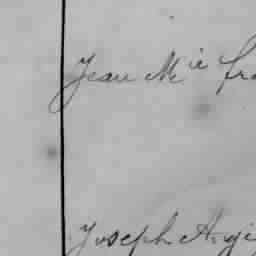 Jean Mie fra
Joseph A.